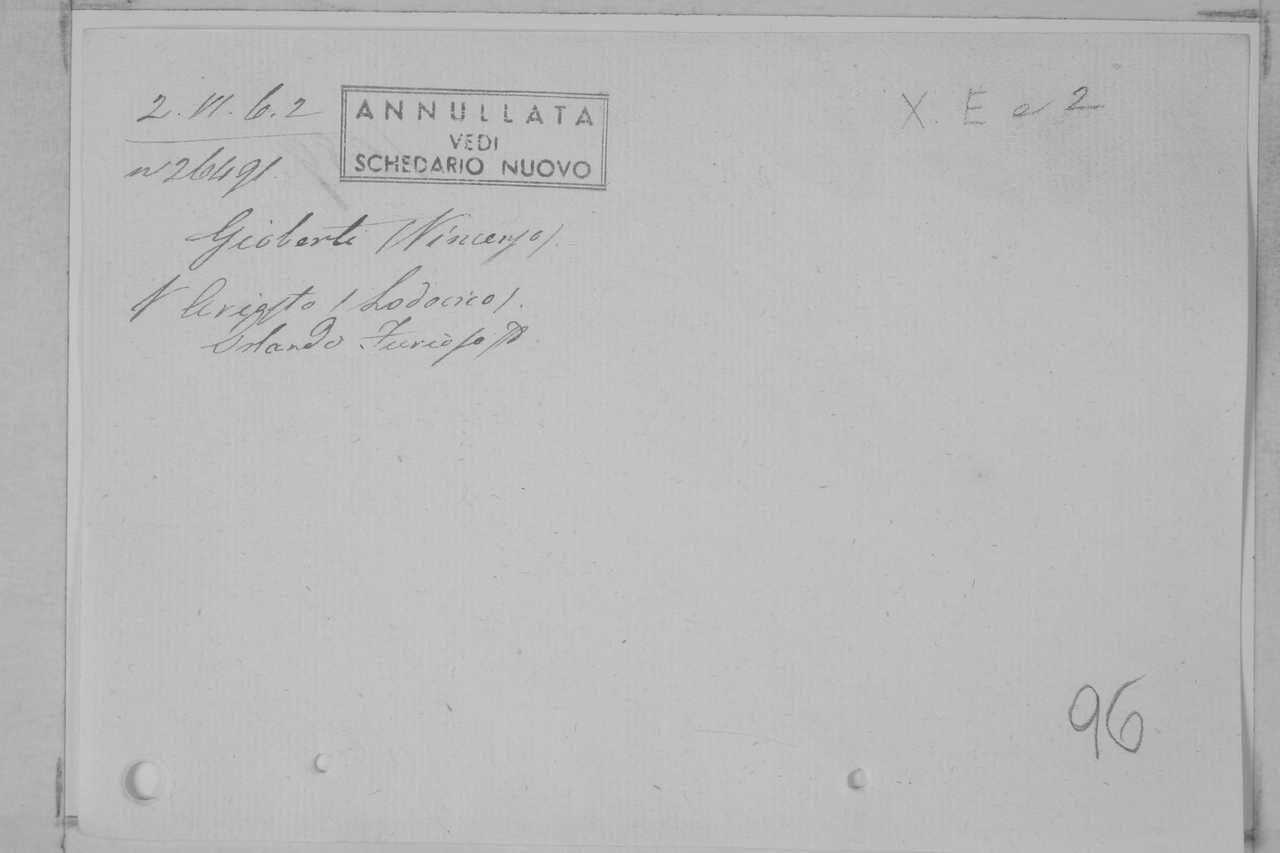 2. VI. 6. 2
X. E a 2
ANNULLATA
VEDI
SCHEDARIO NUOVO
n 26491
Gioberti (Vincenzo).
V Ariosto (Lodovico).
Orlando Furioso
96